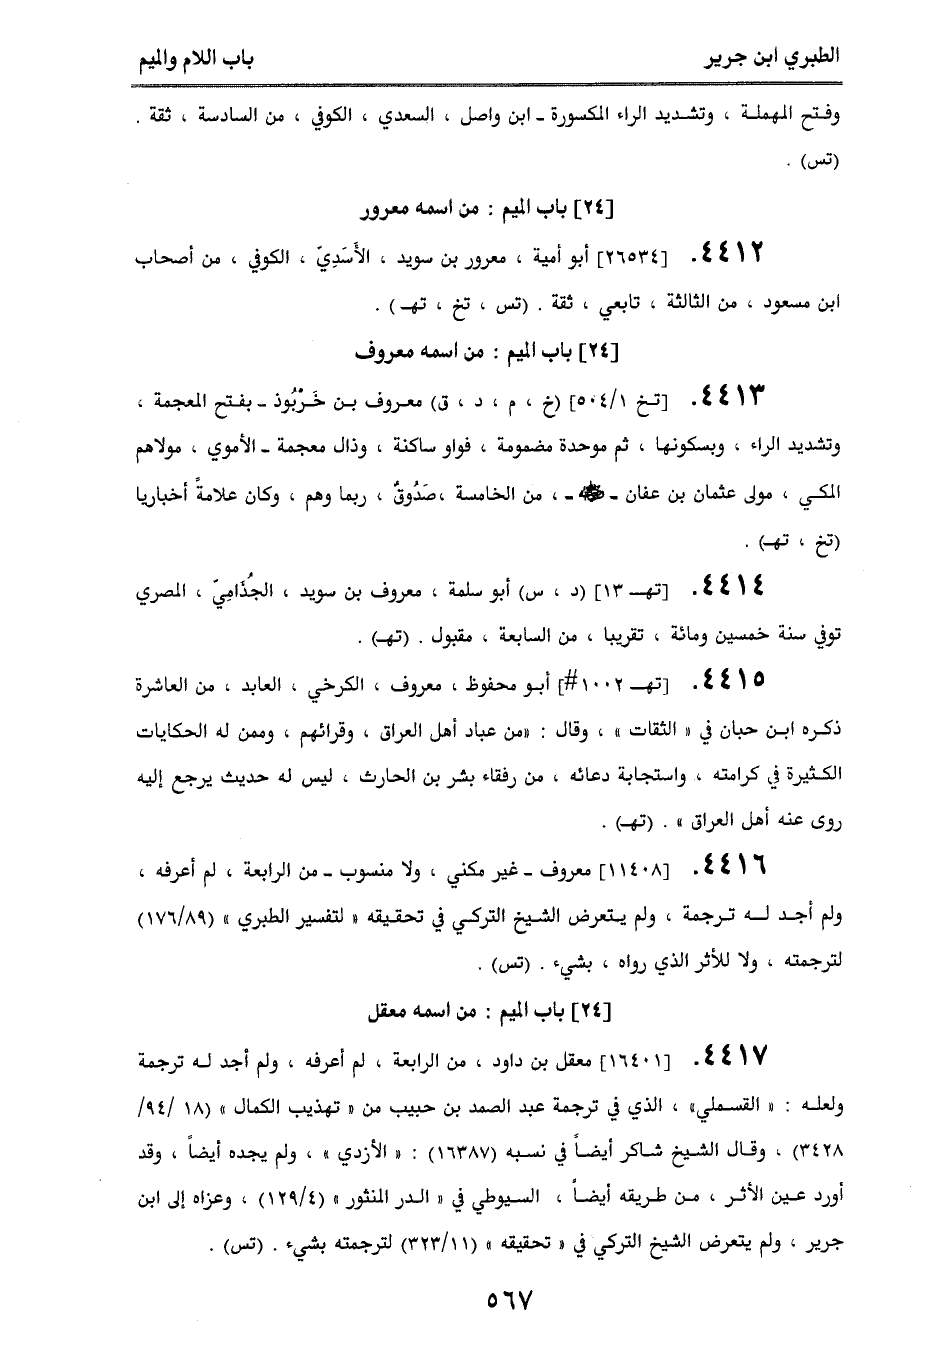 الطبري ابن جرير
باب اللام والميم
وفتح المهملة ، وتشديد الراء المكسورة ـ ابن واصل ، السعدي ، الكوفي ، من السادسة ، ثقة .
(تس) .
[٢٤] باب الميم : من اسمه معرور
٤٤١٢. [٢٦٥٣٤] أبو أمية ، معرور بن سويد ، الأَسَدِيّ ، الكوفي ، من أصحاب
ابن مسعود ، من الثالثة ، تابعي ، ثقة . (تس ، تخ ، تهـ) .
[٢٤] باب الميم : من اسمه معروف
٤٤١٣. [تخ ٥٠٤/١] (خ ، م ، د ، ق) معروف بن خَرَّبُوذ ـ بفتح المعجمة ،
وتشديد الراء ، وبسكونها ، ثم موحدة مضمومة ، فواو ساكنة ، وذال معجمة ـ الأموي ، مولاهم
المكي ، مولى عثمان بن عفان ـ ﷺ ـ ، من الخامسة ، صَدُوقٌ ، ربما وهم ، وكان علامةً أخباريا
(تخ ، تهـ) .
٤٤١٤. [تهـ ١٣] (د ، س) أبو سلمة ، معروف بن سويد ، الجُذَامِيّ ، المصري
توفي سنة خمسين ومائة ، تقريبا ، من السابعة ، مقبول . (تهـ) .
٤٤١٥. [تهـ ١٠٠٢#] أبو محفوظ ، معروف ، الكرخي ، العابد ، من العاشرة
ذكره ابن حبان في « الثقات » ، وقال : «من عباد أهل العراق ، وقرائهم ، وممن له الحكايات
الكثيرة في كرامته ، واستجابة دعائه ، من رفقاء بشر بن الحارث ، ليس له حديث يرجع إليه
روى عنه أهل العراق » . (تهـ) .
٤٤١٦. [١١٤٠٨] معروف ـ غير مكني ، ولا منسوب ـ من الرابعة ، لم أعرفه ،
ولم أجد له ترجمة ، ولم يتعرض الشيخ التركي في تحقيقه « لتفسير الطبري » (١٧٦/٨٩)
لترجمته ، ولا للأثر الذي رواه ، بشيء . (تس) .
[٢٤] باب الميم : من اسمه معقل
٤٤١٧. [١٦٤٠١] معقل بن داود ، من الرابعة ، لم أعرفه ، ولم أجد له ترجمة
ولعله : « القسملي» ، الذي في ترجمة عبد الصمد بن حبيب من « تهذيب الكمال » (١٨ /٩٤/
٣٤٢٨) ، وقال الشيخ شاكر أيضاً في نسبه (١٦٣٨٧) : « الأزدي » ، ولم يجده أيضاً ، وقد
أورد عين الأثر ، من طريقه أيضاً ، السيوطي في « الدر المنثور » (١٢٩/٤) ، وعزاه إلى ابن
جرير ، ولم يتعرض الشيخ التركي في « تحقيقه » (٣٢٣/١١) لترجمته بشيء . (تس) .
٥٦٧